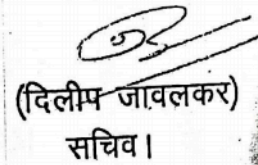 (दिलीप जावलकर)
सचिव।